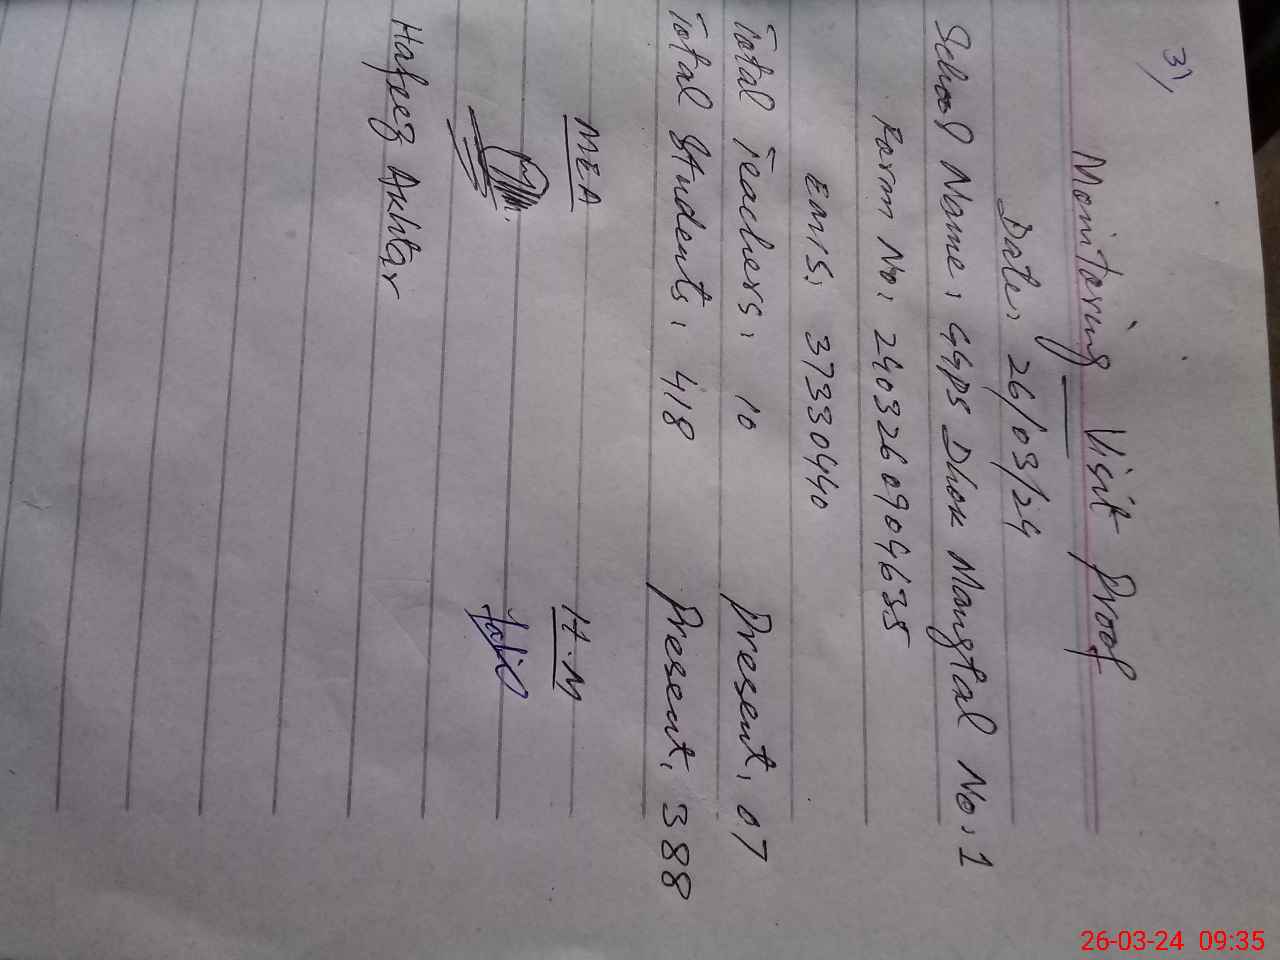 3)
Monitoring Visit Proof
Date: 26/03/24
School Name: GGPS Dhok Mangtal No: 1
Form No: 240326090904635
EMIS: 37330440
Total Teachers: 10 Present: 07
Total Students: 418 Present: 388
MEA H.M
Hafeez Akhtar
26-03-24 09:35